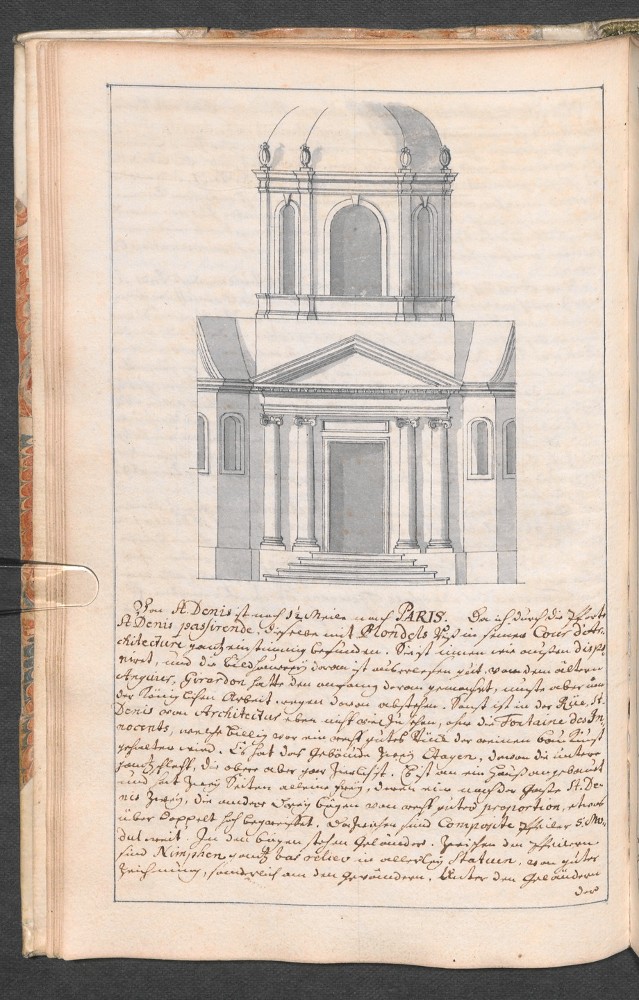 Von St. Denis ist noch 1½ Meile nach PARIS. Da ich durch die Pforte
St Denis passirende, dieselbe mit Blondels Riß in seinem Cour d'Ar-
chitecture gantz einstimmig befunden. Sie ist innen wie außen disponi-
ret, und die Bildhauerey daran ist auserlesen gut, von dem ältern
Anguier, Girardon hatte den anfang daran gemacht, muste aber von
der Königlichen Arbeit wegen davon abstehen. Sonst ist in der Rüe St.
Denis von Architectur eben nicht viel zu sehen, ohne die Fontaine des In-
nocents, welche billig vor ein recht gutes Stück der reinen bau Kunst
gehalten wird. Es hat das Gebäude zwey Etagen, davon die untere
gantz schlecht, die obere aber gar zierlich. Es ist an ein Hauß angebauet
und hat zwey Seiten alleine frey, deren eine nach der Gaße St. De-
nis zwey, die andere bögen von recht guter proportion, etwas
über doppelt so hoch als weit. Dazwischen sind Composite Pfeiler 5 Mo-
dul weit. In den bögen stehen Geländer. Zwischen den Pfeilern
sind Nimphen gantz bas relief in allerley Statuen, von guter
Zeichnung, sonderlich an den Gewändern. Unter den Geländern
der